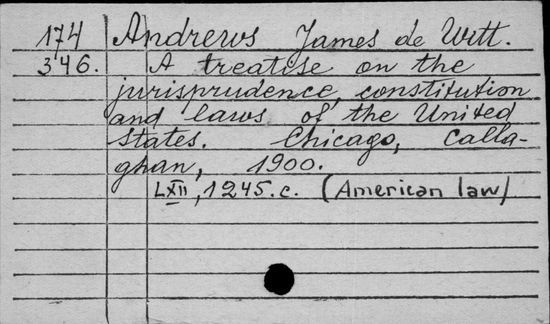 174 Andrews James de Witt.
346. A treatise on the
jurisprudence, constitution
and laws of the United
States. Chicago, Calla-
ghan, 1900.
LXII, 1245.c. (American law)